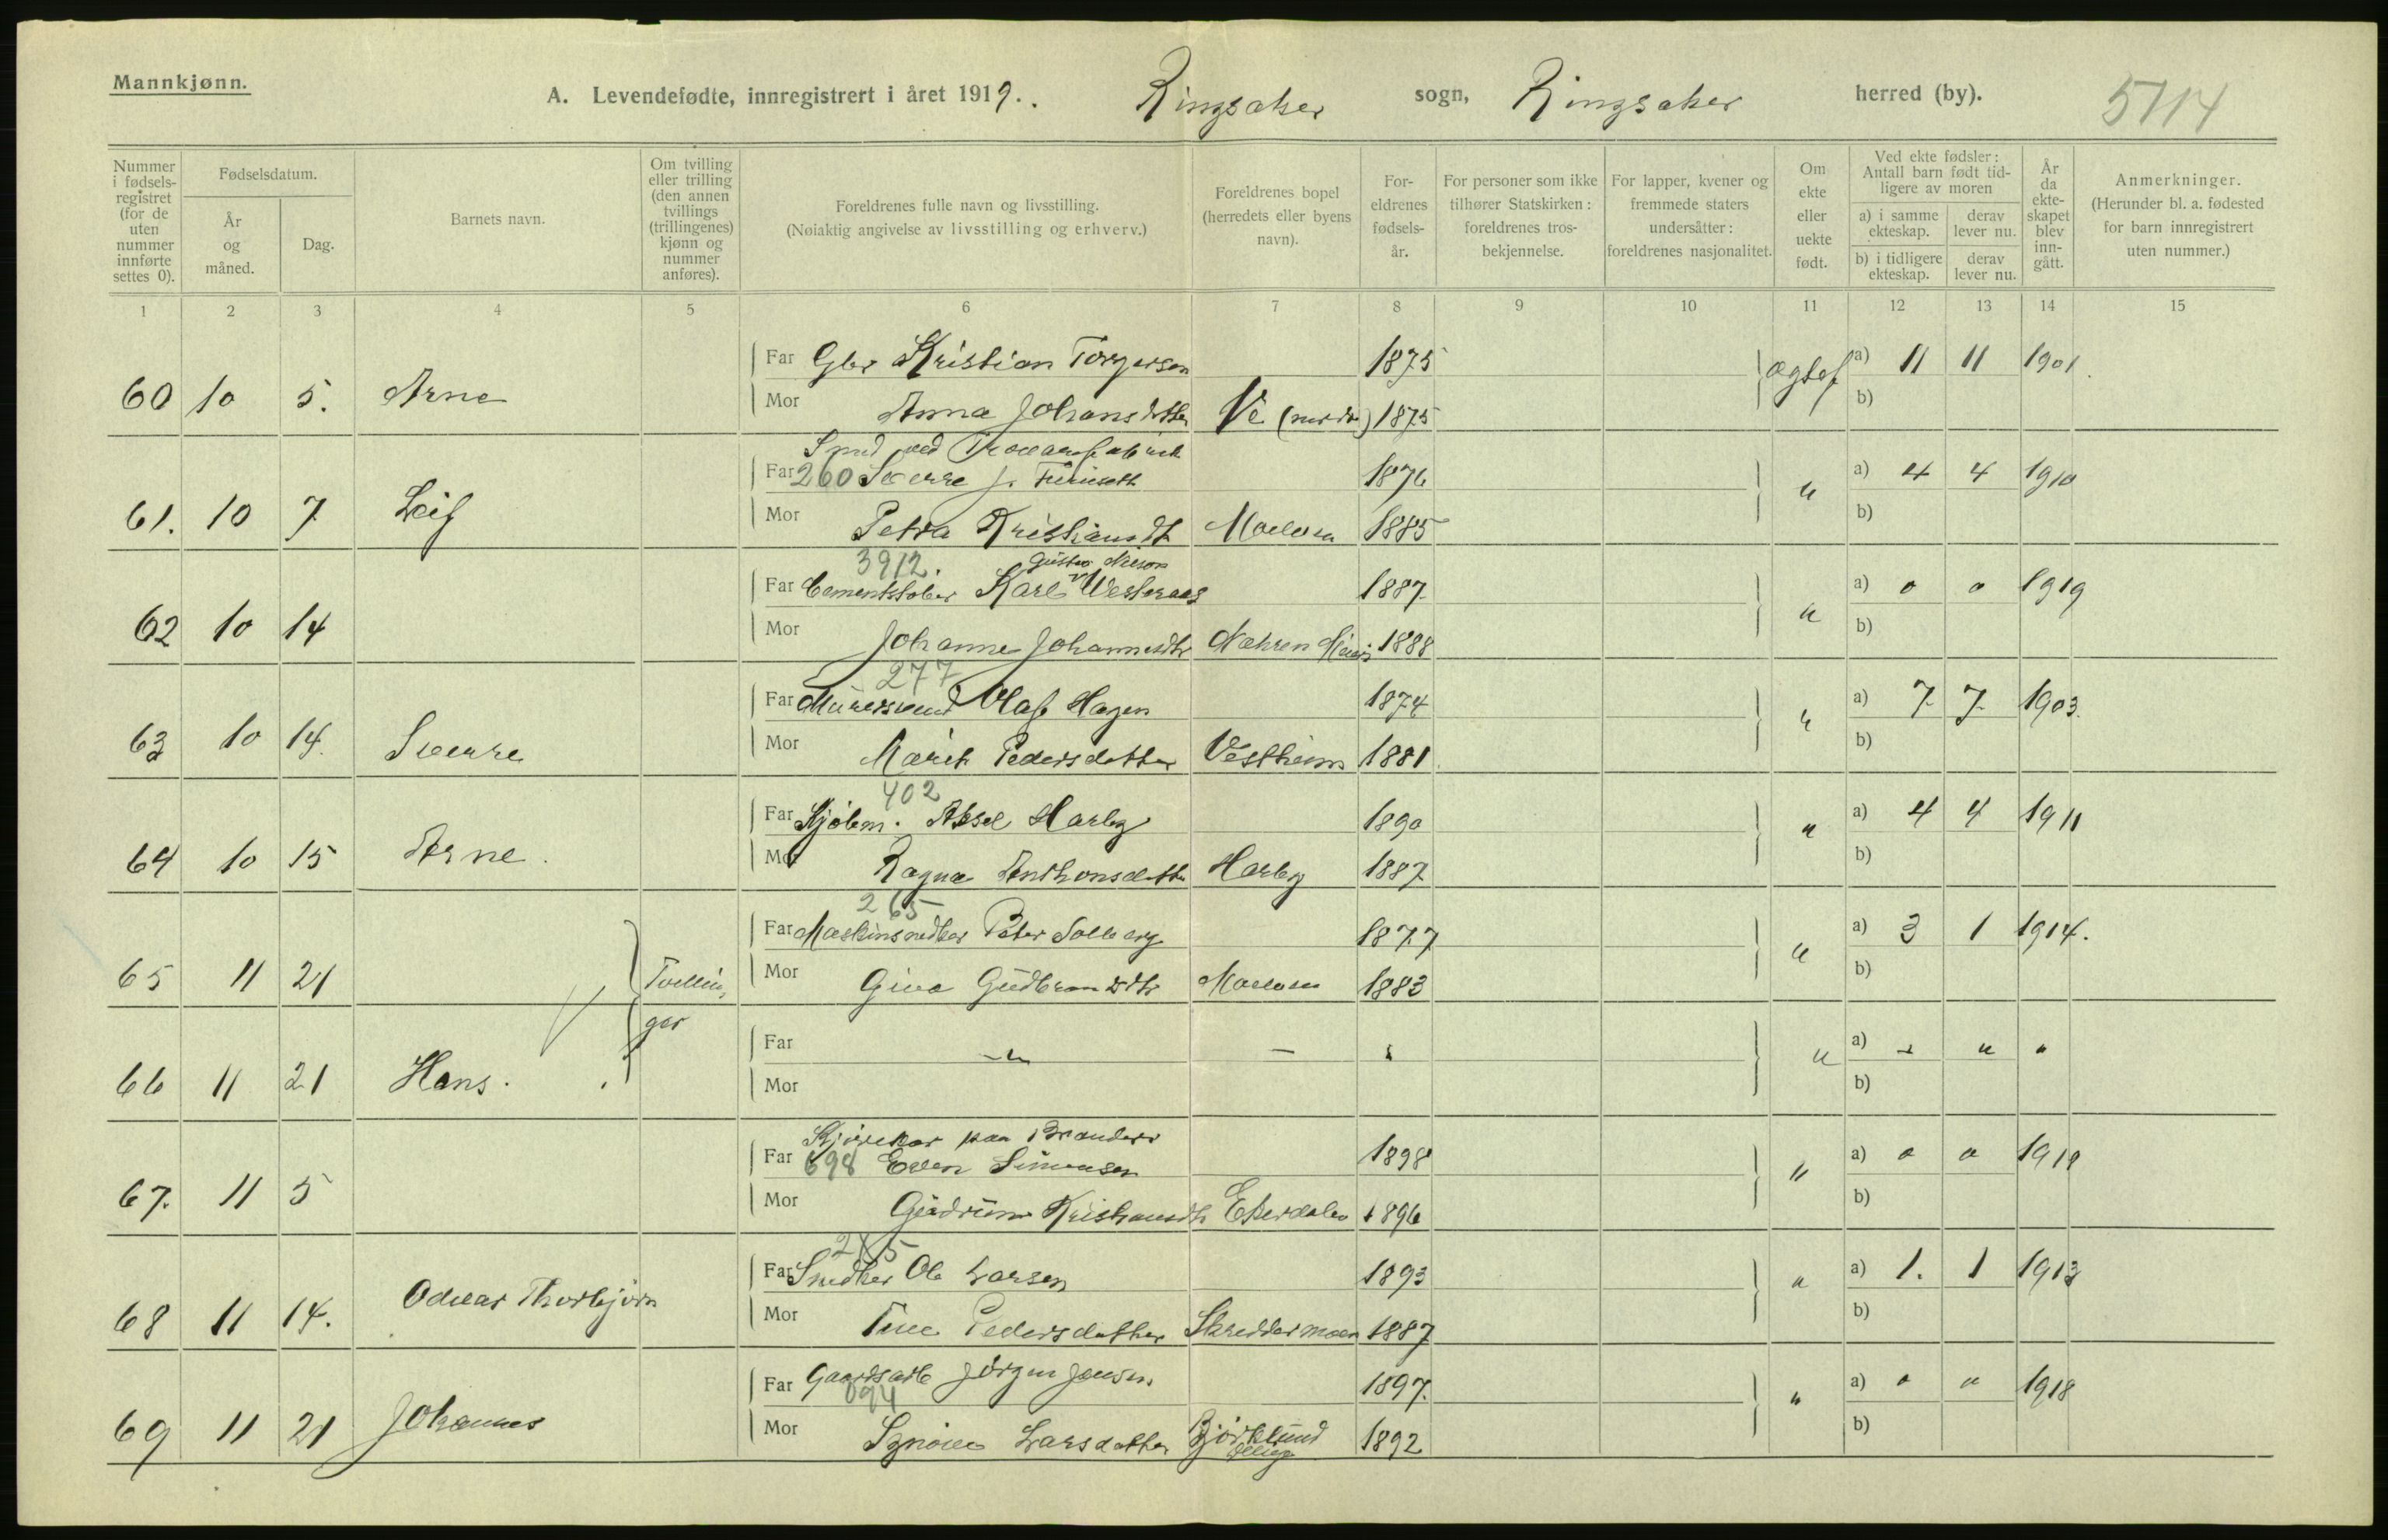 Mannkjønn.
A. Levendefødte, innregistrert i året 1919. Ringsaker sogn, Ringsaker herred (by). 5114
Nummer i fødselsregistret (for de uten nummer innførte settes 0).
Fødselsdatum.
År og måned.
Dag.
Barnets navn.
Om tvilling eller trilling (den annen tvillings (trillingenes) kjønn og nummer anføres).
Foreldrenes fulle navn og livsstilling.
(Nøiaktig angivelse av livsstilling og erhverv.)
Foreldrenes bopel (herredets eller byens navn).
Foreldrenes fødselsår.
For personer som ikke tilhører Statskirken: foreldrenes trosbekjennelse.
For lapper, kvener og fremmede staters undersåtter: foreldrenes nasjonalitet.
Om ekte eller uekte født.
Ved ekte fødsler: Antall barn født tidligere av moren
a) i samme ekteskap.
derav lever nu.
b) i tidligere ekteskap.
derav lever nu.
År da ekteskapet blev inngått.
Anmerkninger.
(Herunder bl. a. fødested for barn innregistrert uten nummer.)
1 2 3 4 5 6 7 8 9 10 11 12 13 14 15
Far Gbr Kristian Torgersen 1875 a) 11 11 1901
60 10 5. Arne Mor Anna Johansdatter Ve 1875 b)
Smed ved
Far 260 Sverre J. 1876 a) 4 4 1910
61. 10 7 Leif Mor Petra Kristiansdt Moelven 1885 b)
3912.
Far Karl Westeraas 1887 a) 0 0 1919
62 10 14 Mor Johanne Johannesdtr 1888 b)
277
Far Murersvend Olaf Hagen 1874 a) 7 7 1903
63 10 14. Sverre Mor Marit Pedersdatter Vestheim 1881 b)
402
Far Kjøbm. Aksel Harby 1890 a) 4 4 1911
64 10 15 Arne. Mor Ragna Anthonsdatter Harby 1887 b)
265
Far Maskinsnedker Peter Solberg 1877 a) 3 1 1914.
65 11 21 Tvillin- Mor Gina Gudbrandsdtr Moelven 1883 b)
ger
Far — " — " " a) " " "
66 11 21 Hans. Mor b)
Kjørekar paa
Far 698 Even Simensen 1898 a) 0 0 1919
67. 11 5 Mor Gudrun Kristiansdtr 1896 b)
Far Snedker Ole Larsen 1893 a) 1. 1 1913
68 11 14. Odvar Thorbjørn Mor Tine Pedersdatter Skreddermoen 1887 b)
Far Gaardsarb Jörgen Jensen 1897. a) 0 0 1918
694
69 11 21 Johannes Mor Synøve Larsdatter Bjørklund 1892 b)